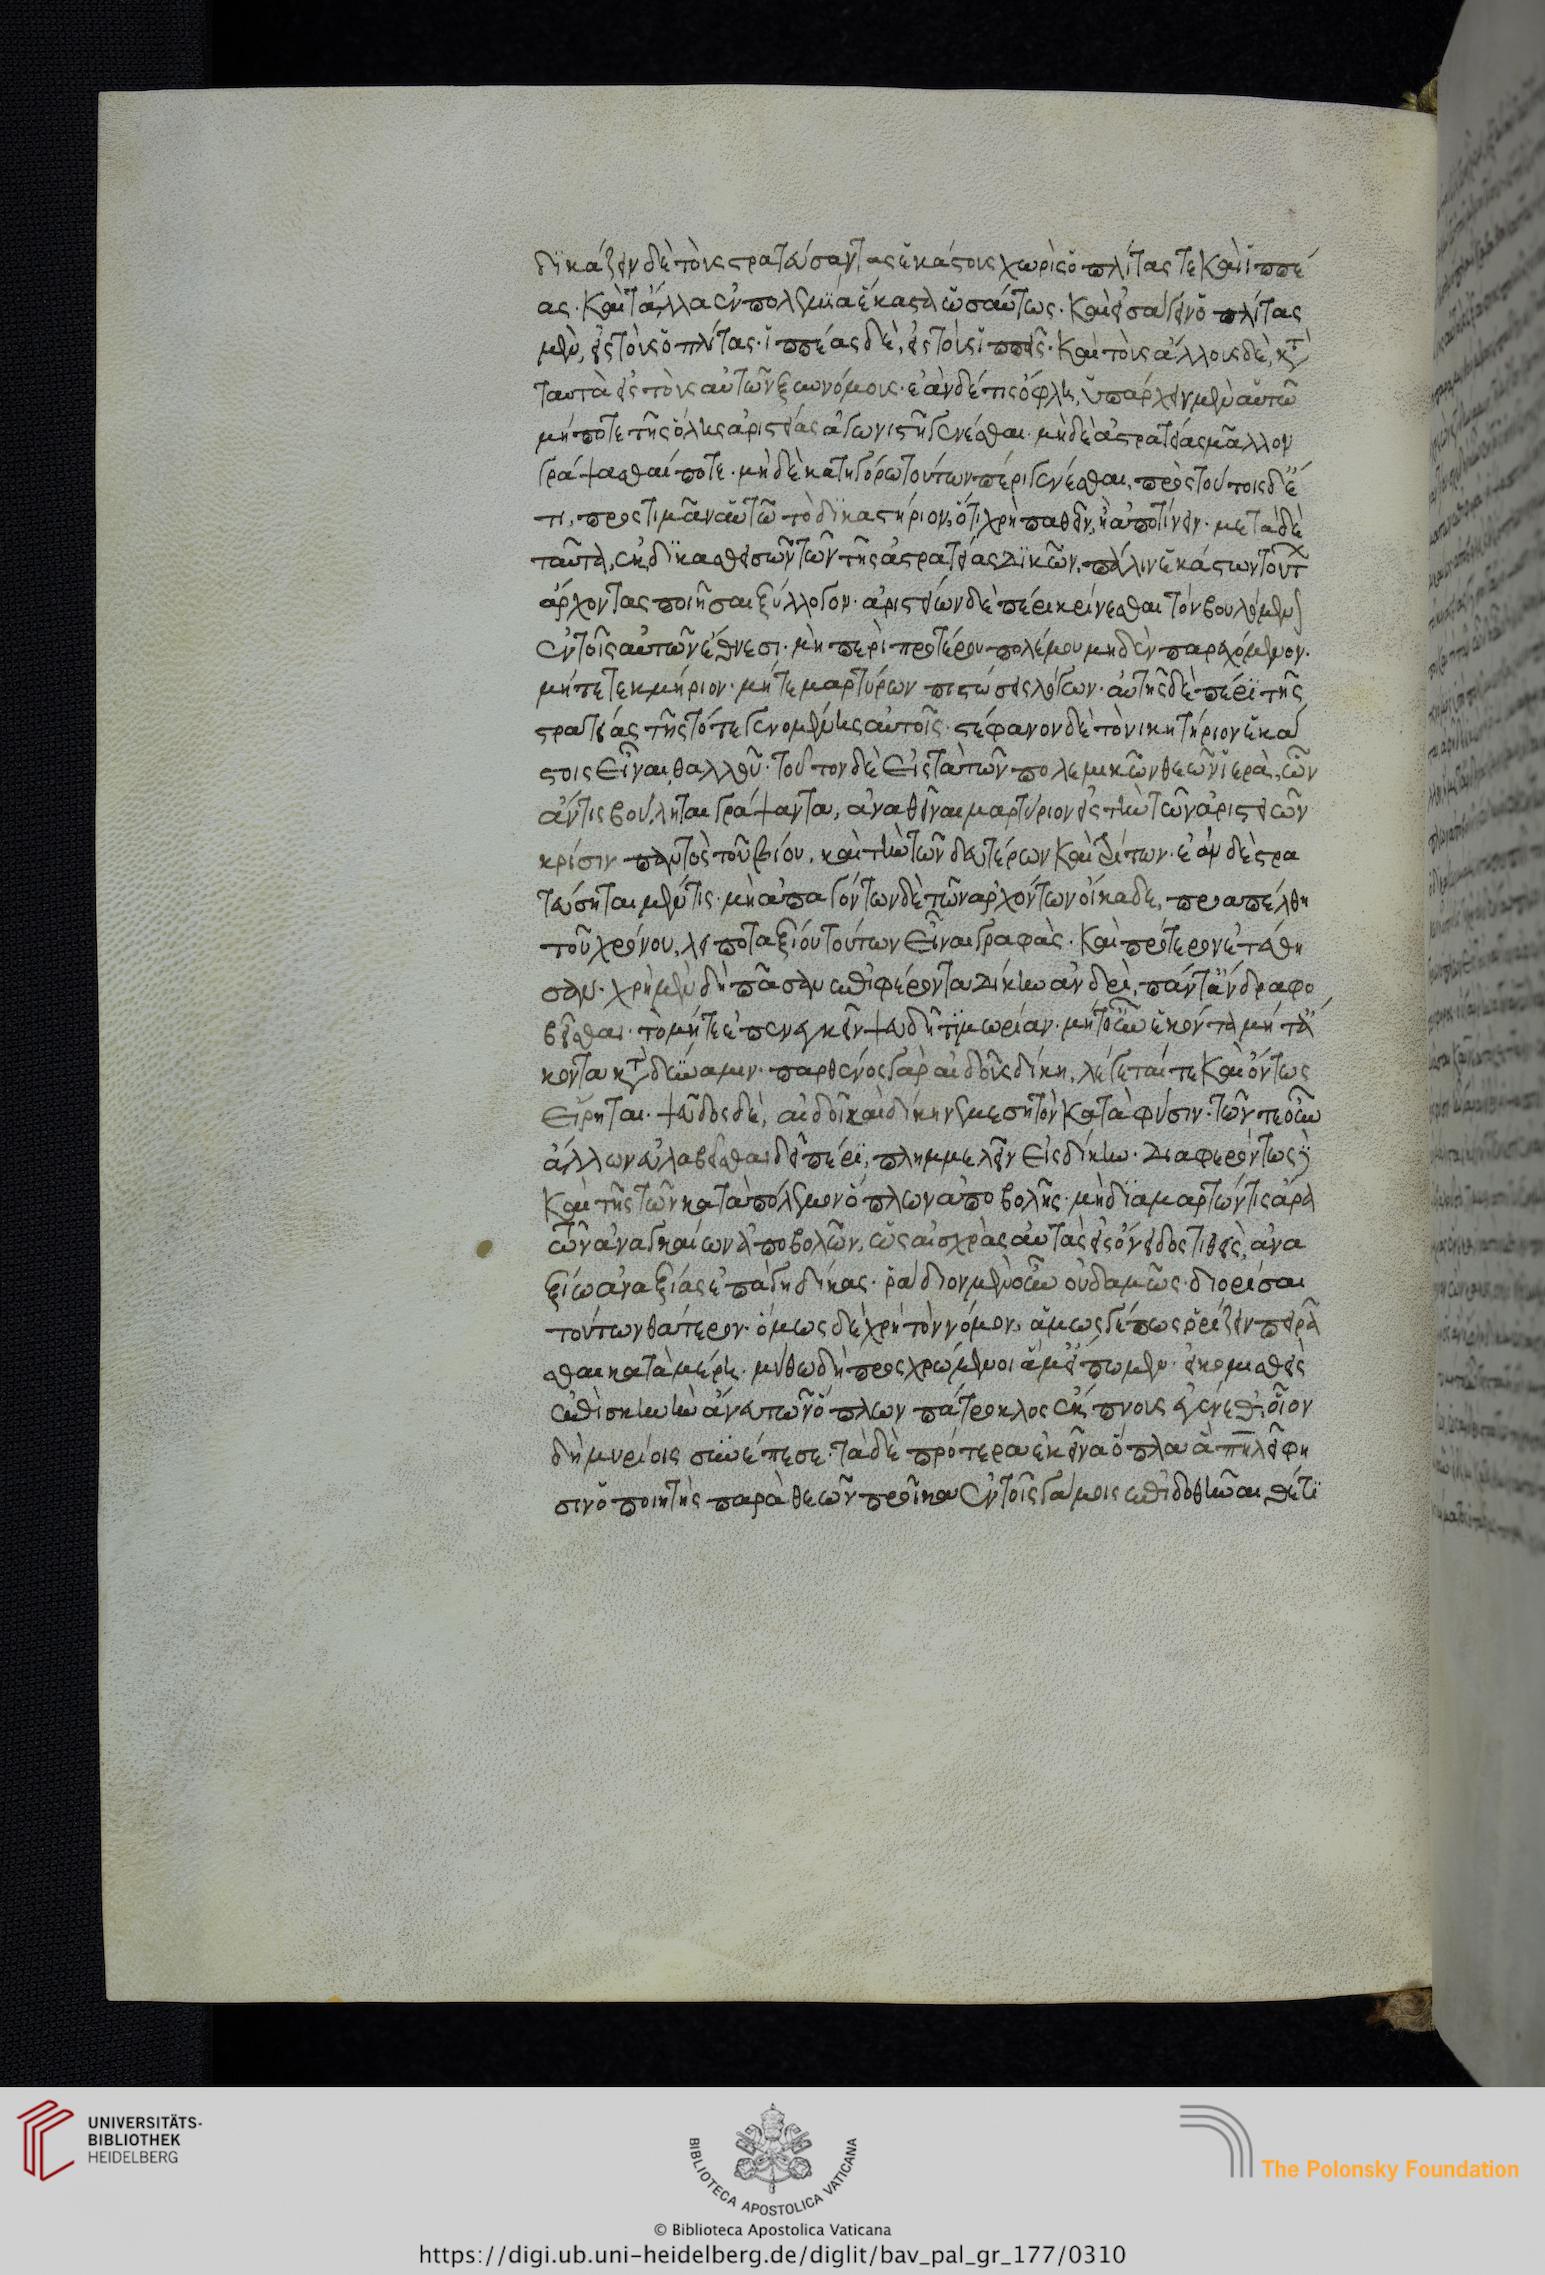 δικάζειν δὲ τοὺς στρατεύσαντας ἑκάστους χωρὶς ὁπλίτας τε καὶ ἱππέ
ας· καὶ τἄλλα ἐμπολέμια ἕκαστα ὡσαύτως· καὶ εἰσάγειν ὁπλίτας
μὲν, εἰς τοὺς ὁπλίτας· ἱππέας δὲ, εἰς τοὺς ἱππεῖς· καὶ τοὺς ἄλλους δὲ, κατὰ
ταυτὰ εἰς τοὺς αὐτῶν ξυννόμους· ἐὰν δέ τις ὄφλῃ, ὑπάρχειν μὲν αὐτῷ
μήποτε τῆς ὅλης ἀριστείας ἀγωνιστῇ γενέσθαι· μηδὲ ἀστρατείας μᾶλλον
γράψασθαί ποτε· μηδὲ κατηγόρῳ τούτων πέρι γενέσθαι, πρὸς τούτοις δὲ ἔ
τι, προστιμᾶν αὐτῷ τὸ δικαστήριον, ὅτι χρὴ παθεῖν, ἢ ἀποτίνειν· μετὰ δὲ
ταῦτα, ἐκδικασθεισῶν τῶν τῆς ἀστρατείας δικῶν, πάλιν ἑκάστων τοὺς
ἄρχοντας ποιῆσαι ξύλλογον· ἀριστείων δὲ πέρι κρίνεσθαι τὸν βουλόμενον
ἐν τοῖς αὑτῶν ἔθνεσι· μὴ περὶ προτέρου πολέμου μηδὲν παρεχόμενον·
μήτε τεκμήριον· μήτε μαρτύρων πιστώσεις λόγων· αὐτῆς δὲ πέρι τῆς
στρατείας τῆς τότε γενομένης αὐτοῖς· στέφανον δὲ τὸ νικητήριον ἑκά
στοις εἶναι θαλλοῦ· τοῦτον δὲ εἰς τὰ τῶν πολεμικῶν θεῶν ἱερὰ, ὧν
ἄν τις βούληται γράψαντα, ἀναθεῖναι μαρτύριον εἰς τὴν τῶν ἀριστείων
κρίσιν παντὸς τοῦ βίου, καὶ τὴν τῶν δευτέρων καὶ τρίτων· ἐὰν δὲ στρα
τεύσηται μέν τις· μὴ ἀπαγόντων δὲ τῶν ἀρχόντων οἴκαδε, προαπέλθῃ
τοῦ χρόνου, λειποταξίου τούτων εἶναι γραφὰς· καὶ πρότερον ἐτάθη
σαν· χρὴ μὲν δὴ πᾶσαν ἐπιφέροντα δίκην ἀνδρὶ, πάντ' ἄνδρα φο
βεῖσθαι· τὸ μήτε ἐπενεγκεῖν ψευδῆ τιμωρίαν· μήτ' οὖν ἑκόντα μήτ' ἄ
κοντα κατὰ δύναμιν· παρθένος γὰρ αἰδοῦς δίκη, λέγεταί τε καὶ ὄντως
εἴρηται· ψεῦδος δὲ, αἰδοῖ καὶ δίκῃ νεμεσητὸν κατὰ φύσιν· τῶν τε οὖν
ἄλλων εὐλαβεῖσθαι δεῖ πέρι, πλημμελεῖν εἰς δίκην· διαφερόντως δὲ
καὶ τῆς τῶν κατὰ πόλεμον ὅπλων ἀποβολῆς· μὴ διαμαρτών τις ἄρα
τῶν ἀναγκαίων ἀποβολῶν, ὡς αἰσχρὰς αὐτὰς εἰς ὄνειδος τιθεὶς, ἀνα
ξίῳ ἀναξίας ἐπάγῃ δίκας· ῥᾴδιον μὲν οὖν οὐδαμῶς· διορίσαι
τούτων θάτερον· ὅμως δὲ χρὴ τὸν νόμον, ἁμῶς γέ πως ὁρίζειν πειρᾶ
σθαι κατὰ μέρη· μύθῳ δὴ προσχρώμενοι ἅμ' εἴπωμεν· εἰ κομισθεὶς
ἐπὶ σκηνὴν ἄνευ τῶν ὅπλων πάτροκλος ἔκπνους ἐγένεθ', οἷον
δὴ μυρίοις συνέπεσε· τὰ δὲ πρότερα ἐκεῖνα ὅπλα ἃ πηλεῖ φη
σιν ὁ ποιητὴς παρὰ θεῶν προῖκα ἐν τοῖς γάμοις ἐπιδοθῆναι θέτι
UNIVERSITÄTS-
BIBLIOTHEK
HEIDELBERG
BIBLIOTECA APOSTOLICA VATICANA
The Polonsky Foundation
© Biblioteca Apostolica Vaticana
https://digi.ub.uni-heidelberg.de/diglit/bav_pal_gr_177/0310